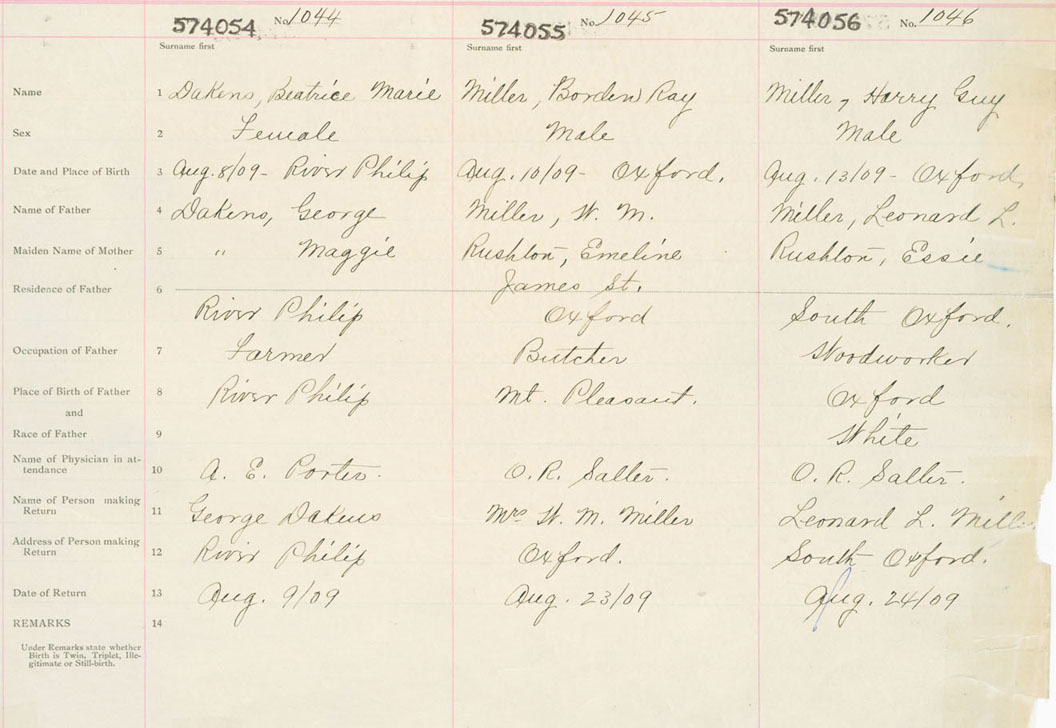 574054 No. 1044 574055 No. 1045 574056 No. 1046
Surname first Surname first Surname first
Name 1 Dakens, Beatrice Marie Miller, Borden Ray Miller, Harry Guy
Sex 2 Female Male Male
Date and Place of Birth 3 Aug. 8/09 - River Philip Aug. 10/09 - Oxford. Aug. 13/09 - Oxford,
Name of Father 4 Dakens, George Miller, W. M. Miller, Leonard L.
Maiden Name of Mother 5 " Maggie Rushton, Emeline Rushton, Essie
Residence of Father 6 James St.
River Philip Oxford South Oxford.
Occupation of Father 7 Farmer Butcher Woodworker
Place of Birth of Father 8 River Philip Mt. Pleasant. Oxford
and
Race of Father 9 White
Name of Physician in at-
tendance 10 A. E. Porter. O. R. Salter. O. R. Salter.
Name of Person making
Return 11 George Dakens Mrs W. M. Miller Leonard L. Mill
Address of Person making
Return 12 River Philip Oxford. South Oxford.
Date of Return 13 Aug. 9/09 Aug. 23/09 Aug. 24/09
REMARKS 14
Under Remarks state whether
Birth is Twin, Triplet, Ille-
gitimate or Still-birth.